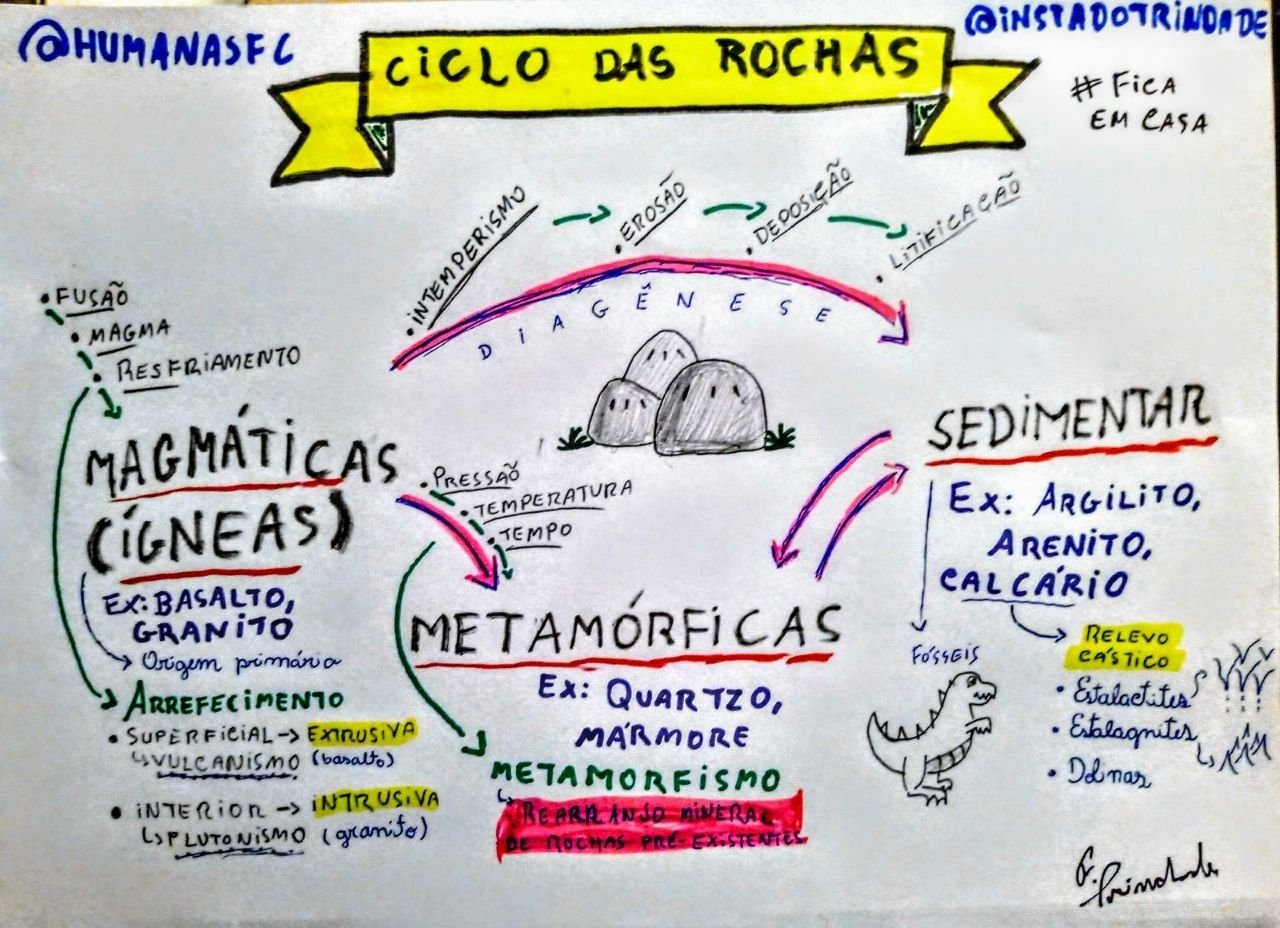 @HUMANASFC
@INSTADOTRINDADE
CICLO DAS ROCHAS
# FICA
EM CASA
• INTEMPERISMO
• EROSÃO
• DEPOSIÇÃO
• LITIFICAÇÃO
DIAGÊNESE
• FUSÃO
• MAGMA
• RESFRIAMENTO
MAGMÁTICAS
(ÍGNEAS)
EX: BASALTO,
GRANITO
Origem primária
ARREFECIMENTO
• SUPERFICIAL → EXTRUSIVA
VULCANISMO (basalto)
• INTERIOR → INTRUSIVA
PLUTONISMO (granito)
• PRESSÃO
• TEMPERATURA
• TEMPO
METAMÓRFICAS
EX: QUARTZO,
MÁRMORE
METAMORFISMO
REARRANJO MINERAL
DE ROCHAS PRÉ-EXISTENTES
SEDIMENTAR
EX: ARGILITO,
ARENITO,
CALCÁRIO
FÓSSEIS
RELEVO
CÁSTICO
• Estalactites
• Estalagnites
• Dolinas
F. Trindade